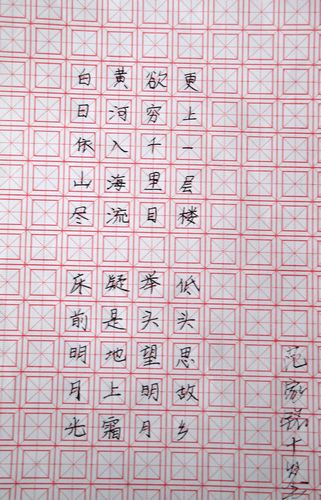 白日依山尽
黄河入海流
欲穷千里目
更上一层楼
床前明月光
疑是地上霜
举头望明月
低头思故乡